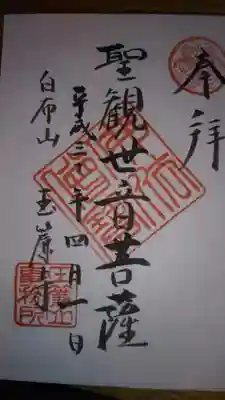 奉拝
聖観世音菩薩
平成三十年四月一日
白布山
事務所